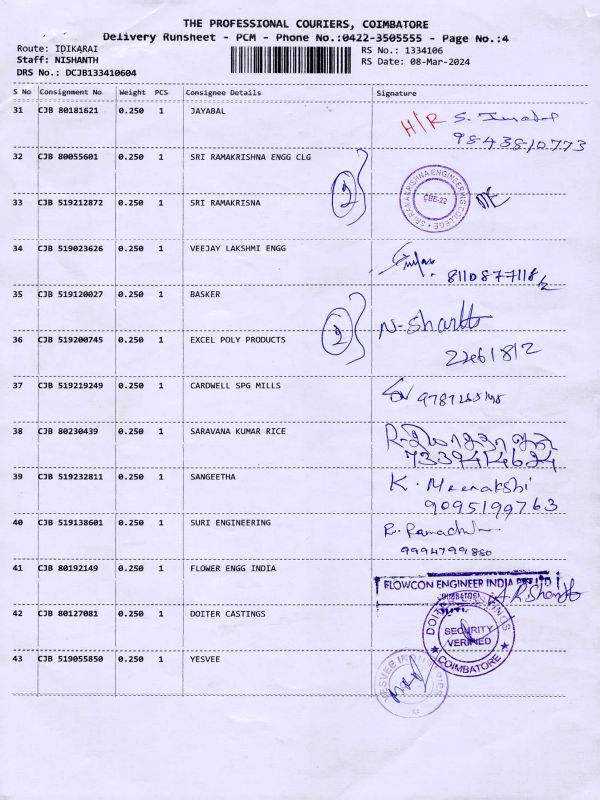 THE PROFESSIONAL COURIERS, COIMBATORE
Delivery Runsheet - PCM - Phone No.:0422-3505555 - Page No.:4
Route: IDIKARAI
RS No.: 1334106
Staff: NISHANTH
RS Date: 08-Mar-2024
DRS No.: DCJB133410604
S No Consignment No Weight PCS Consignee Details Signature
31 CJB 80181621 0.250 1 JAYABAL
H/R S.
9843810773
32 CJB 80055601 0.250 1 SRI RAMAKRISHNA ENGG CLG
2
SRI RAMAKRISHNA ENGINEERING COLLEGE
CBE-22
33 CJB 519212872 0.250 1 SRI RAMAKRISNA
34 CJB 519023626 0.250 1 VEEJAY LAKSHMI ENGG
35 CJB 519120027 0.250 1 BASKER
2
36 CJB 519200745 0.250 1 EXCEL POLY PRODUCTS
37 CJB 519219249 0.250 1 CARDWELL SPG MILLS
38 CJB 80230439 0.250 1 SARAVANA KUMAR RICE
39 CJB 519232811 0.250 1 SANGEETHA
K. Meenakshi
9095199763
40 CJB 519138601 0.250 1 SURI ENGINEERING
9994799880
41 CJB 80192149 0.250 1 FLOWER ENGG INDIA
FLOWCON ENGINEER INDIA PVT LTD
42 CJB 80127081 0.250 1 DOITER CASTINGS
SECURITY
VERIFIED
COIMBATORE
43 CJB 519055850 0.250 1 YESVEE